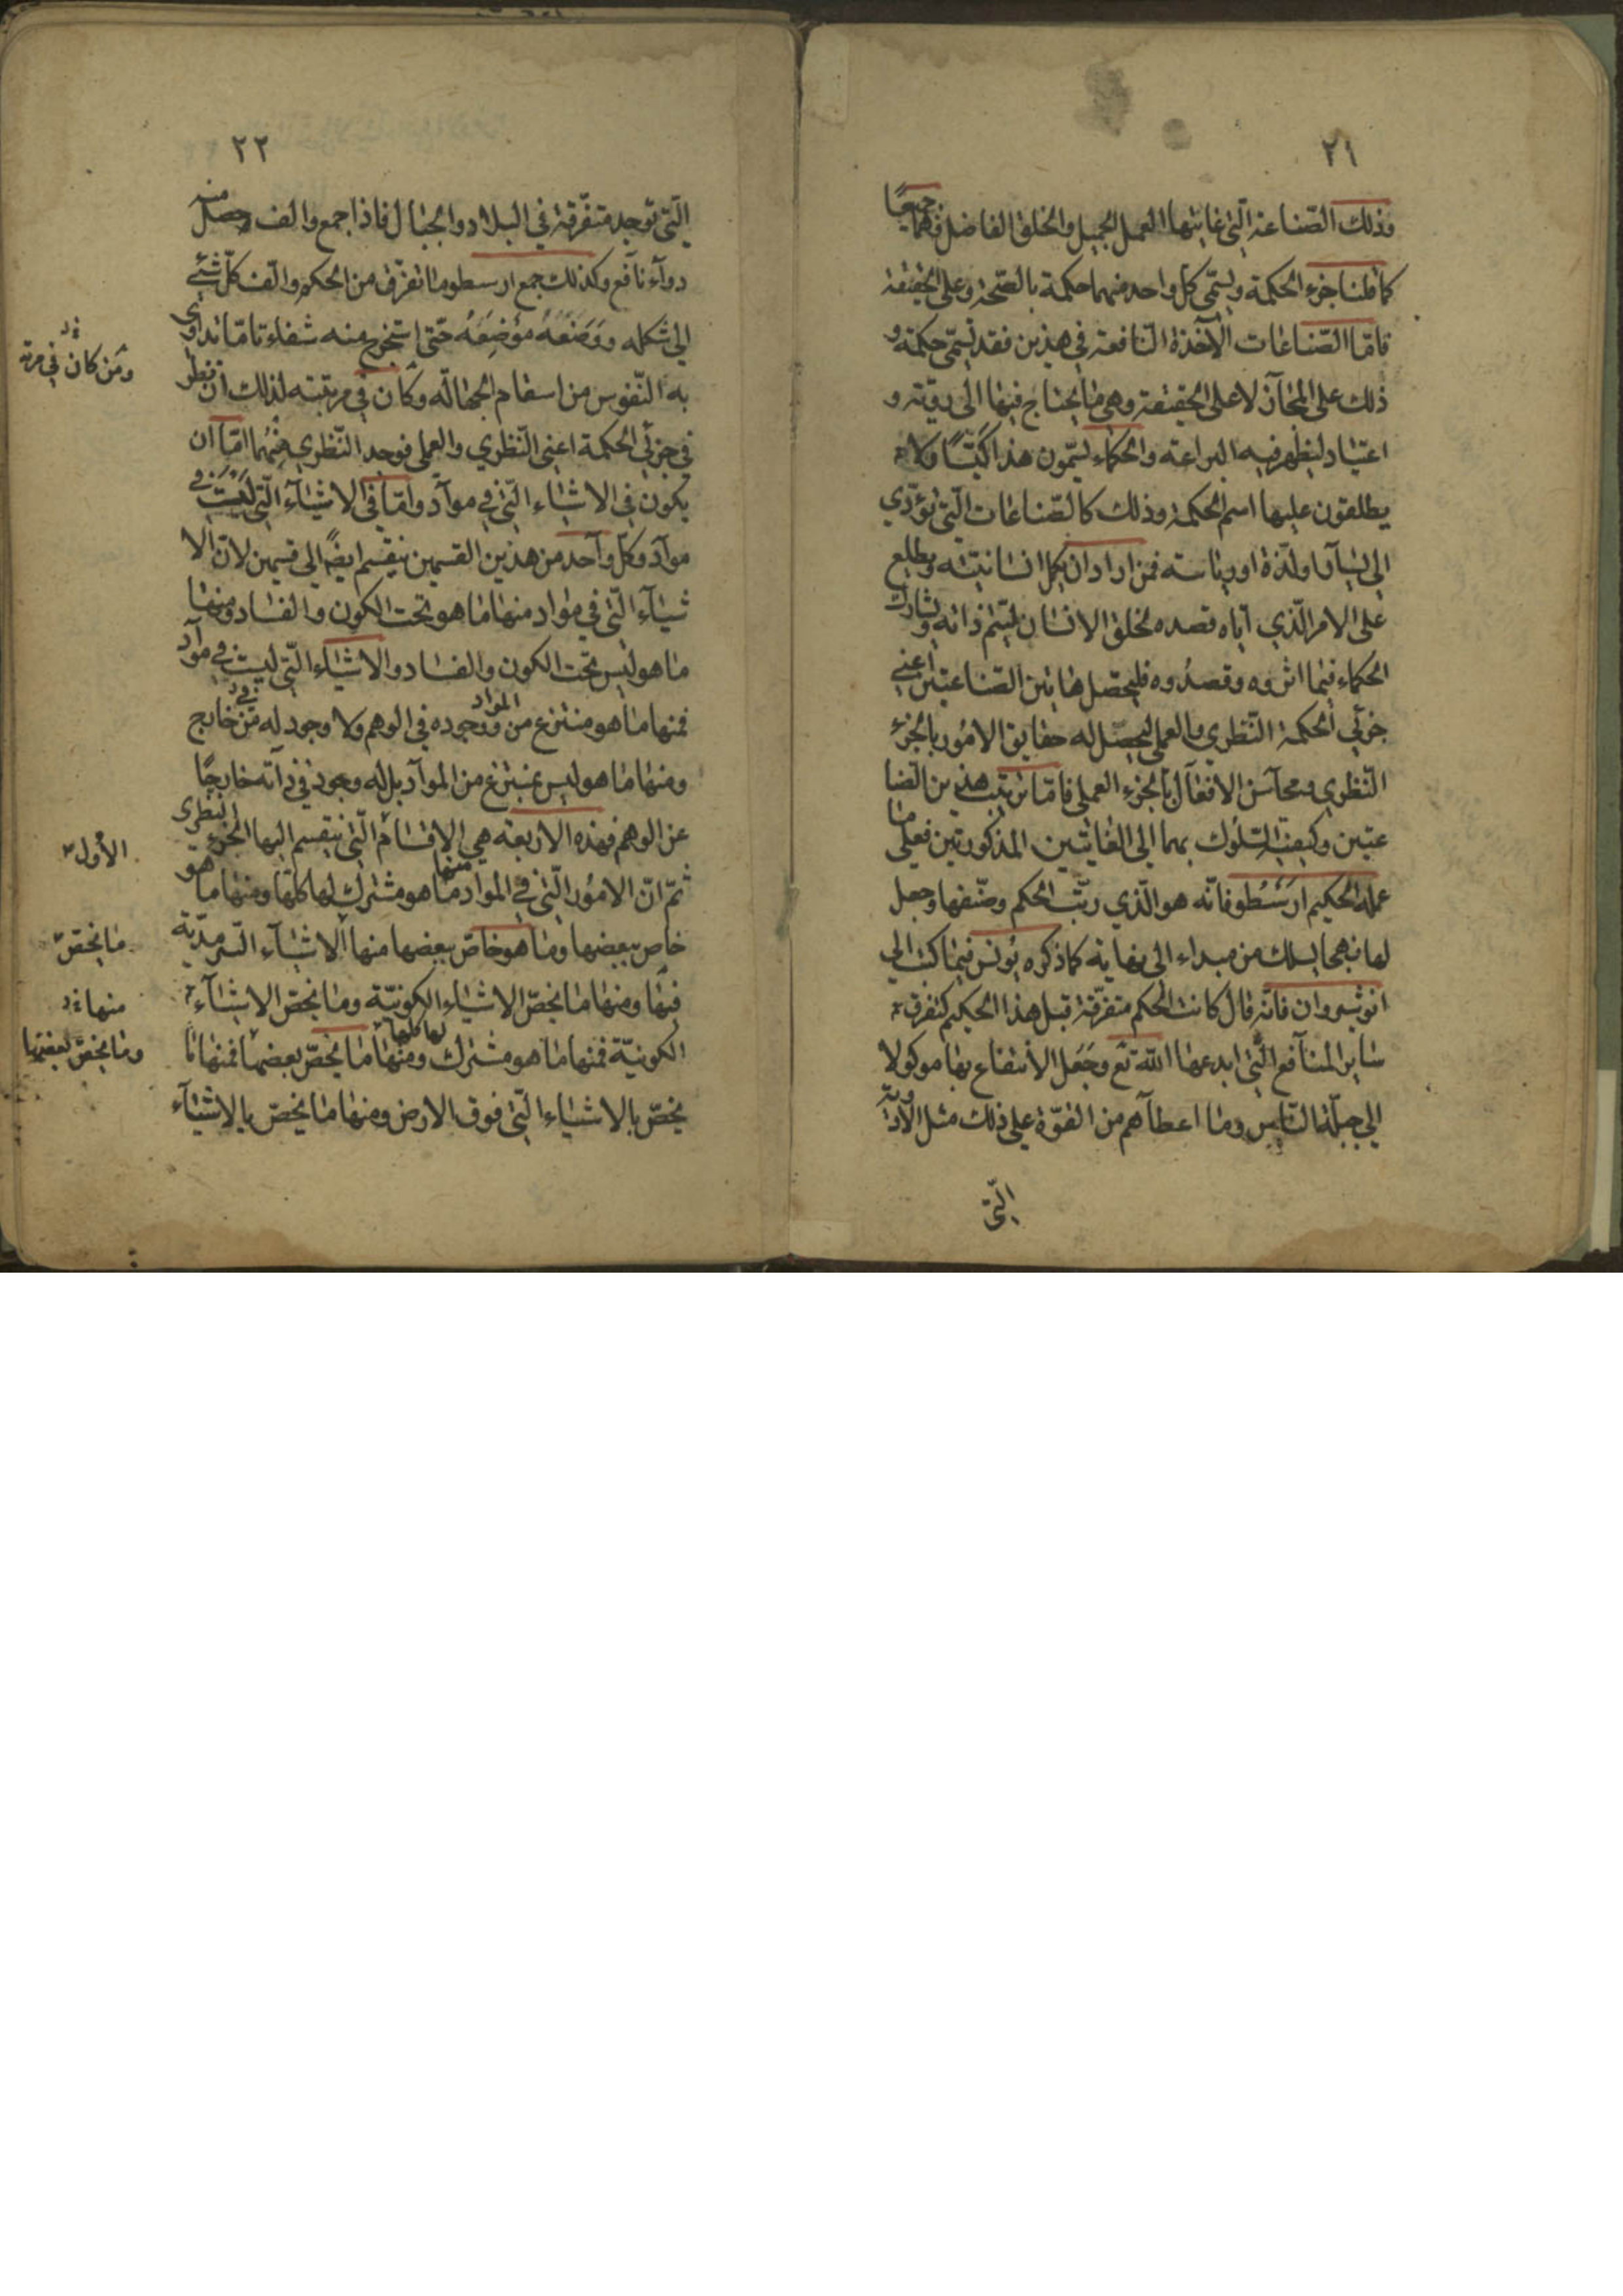 ٢١
وذلك الصّناعة الّتي غايتها العمل الجميل والخلق الفاضل وهما جميعًا
كما قلنا جزء الحكمة ويسمّى كلّ واحد منهما حكمة بالصّحة وعلى الحقيقة
فامّا الصّناعات الآخذة النّافعة في هذين فقد تسمّى حكمة و
ذلك على المجاز لا على الحقيقة وهي ما يحتاج فيها الى رويّة و
اعتياد ليظهر فيه البراعة والحكماء يسمّون هذا كيسًا ولا
يطلقون عليها اسم الحكمة وذلك كالصّناعات الّتي تؤدّي
الى يسار او لذّة او رياسة فمن اراد ان يكمل انسانيته ويطلع
على الامر الّذي ايّاه قصد بخلق الانسان ليتمّ ذاته ويشارك
الحكماء فيما اثروه وقصدوه فليحصّل هاتين الصّناعتين اعني
جزئي الحكمة النّظري والعملي ليحصل له حقايق الامور بالجزء
النّظري ومحاسن الافعال بالجزء العملي فامّا ترتيب هذين الصّنا
عتين وكيف السّلوك بهما الى الغايتين المذكورتين فعلى ما
عمله الحكيم ارسطو فانّه هو الّذي رتّب الحكم وصنّفها وجعل
لها نهجا يسلك من مبداء الى نهاية كما ذكره بولس فيما كتب الى
انوشيروان فانّه قال كانت الحكم متفرّقة قبل هذا الحكيم كتفرق
ساير المنافع الّتي ابدعها الله تع وجعل الانتفاع بها موكولا
الى جبلّة النّاس وما اعطاهم من القوّة على ذلك مثل الادوية
الّتي
٢٢
الّتي توجد متفرّقة في البلاد والجبال فاذا جمع والف حصل منه
دواء نافع وكذلك جمع ارسطو ما تفرّق من الحكم والّف كلّ شئ
الى شكله ووضعه موضعه حتى استخرج منه شفاء تامّا تداوى
به النّفوس من اسقام الجهالة وكان في مرتبته لذلك ان نظر
في جزئي الحكمة اعني النّظري والعملي فوجد النّظري منهما امّا ان
يكون في الاشياء الّتي في موادّ وامّا في الاشياء الّتي ليست في
موادّ وكلّ واحد من هذين القسمين ينقسم ايضًا الى قسمين لانّ الا
شياء الّتي في مواد منها ما هو تحت الكون والفساد ومنها
ما هو ليس تحت الكون والفساد والاشياء الّتي ليست في موادّ
فمنها ما هو منتزع من المواد ووجوده في الوهم ولا وجود له من خارج
ومنها ما هو ليس بمنتزع من الموادّ بل له وجود في ذاته خارجًا
عن الوهم فهذه الاربعة هي الاقسام الّتي ينقسم اليها الجزء النظري
ثمّ انّ الامور الّتي في المواد منها ما هو مشترك لها كلّها ومنها ما هو
خاص ببعضها وما هو خاصّ ببعضها منها الاشياء السّرمديّة
فيها ومنها ما يخصّ الاشياء الكونيّة وما يخصّ الاشياء
الكونيّة فمنها ما هو مشترك لها كلها ومنها ما يخصّ بعضها فمنها ما
يخصّ بالاشياء الّتي فوق الارض ومنها ما يخصّ بالاشياء
ومن كان في مرتبة
الاول
ما يخص
منها
وما يخصّ بعضها